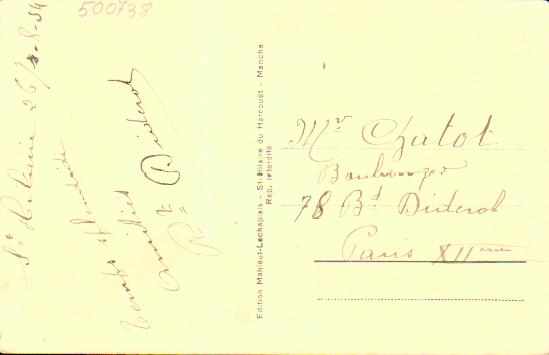 500738
St Hilaire 26/8-54
Temps splendide
Amitiés
Rue Diderot
Edition Mahieut-Lechaplais - St-Hilaire du Harcouët - Manche
Rep. interdite
Mr Chatot
Boulanger
78 Bd Diderot
Paris XIIeme